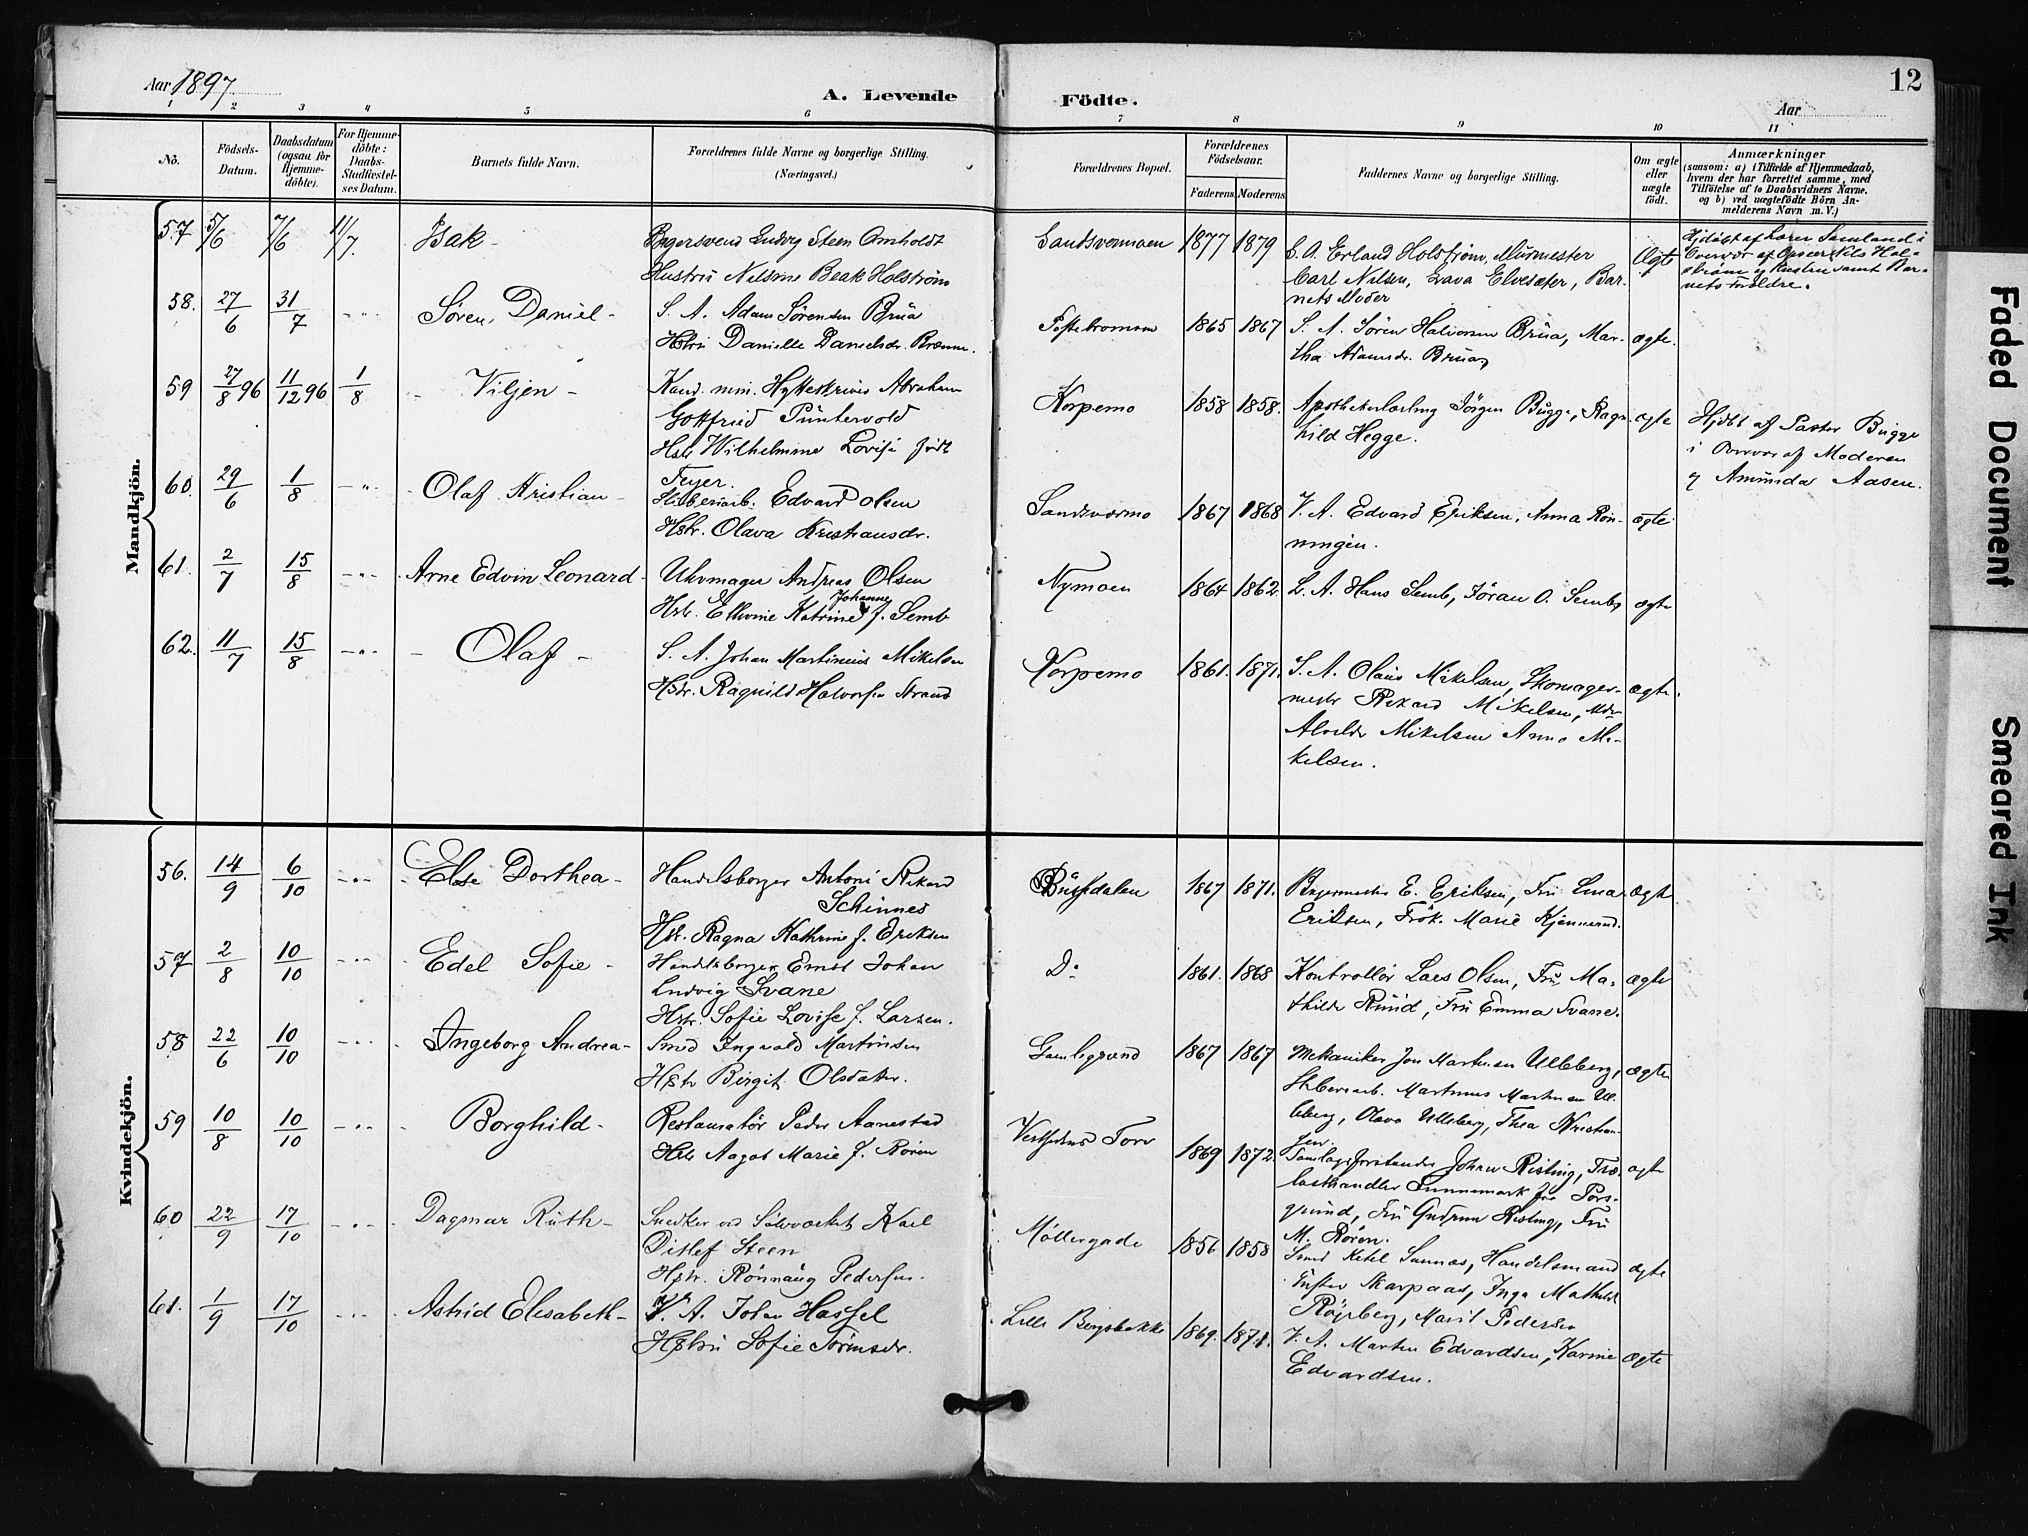 Aar 1897
A. Levende
Födte.
Aar
12
1 2 3 4 5 6 7 8 9 10 11
No.
Födsels-
Datum.
Daabsdatum
(ogsaa for
Hjemme-
döbte).
For Hjemme-
döbte:
Daabs-
Stadfæstel-
ses Datum.
Barnets fulde Navn.
Forældrenes fulde Navne og borgerlige Stilling.
(Næringsvei.)
Forældrenes Bopæl.
Forældrenes
Födselsaar.
Faderens Moderens
Faddernes Navne og borgerlige Stilling.
Om ægte
eller
uægte
født.
Anmærkninger
(saasom: a) i Tilfælde af Hjemmedaab,
hvem der har forrettet samme, med
Tilföielse af to Daabsvidners Navne.
og b) ved uægtefödte Börn An-
melderens Navn m. V.)
Mandkjön.
57 5/6 7/6 11/7. Isak -
Bagersvend Ludvig Steen Omholdt
Hustru Nilsine Beak Holström
Sandsværmoen 1877 1879
Erland Holström, Murmester
Carl Nilsen, Lava Elvesæter, Bar-
nets Moder
Ægte
Hjdöbt af Lærer Samland i
Overvær af Nils Hol-
ström og Hustru samt Bar-
nets Forældre.
58. 27/6 31/7 -"- Søren Daniel -
S. A. Adam Sørensen Brua
Hstru Danielle Danielsdr. Brænne.
Toftebromoen 1865 1867
S. A. Søren Halvorsen Brua, Mar-
tha Adamsdr. Brua,
ægte.
59 27/8 96 11/12 96 1/8 - Viljen -
Kand. min. Hytteskriver Abraham
Gottfried Püntervold
Hstr Wilhelmine Lovise född
Feyer.
Korpemo 1858 1858.
Apothekerlærling Jörgen Bugge, Ragn-
hild Hegge.
ægte
Hjdbt af Pastor Bugge
i Overvær af Moderen
og Amunda Aasen.
60. 29/6 1/8 -"- Olaf Kristian -
Edvard Olsen
Hstr. Olava Kristiansdr.
Sandsværmo 1867 1868
V. A. Edvard Eriksen, Anna Røn-
ningen.
ægte
61. 2/7 15/8 -"- Arne Edvin Leonard -
Uhrmager Andreas Olsen
Johanne
Hstr. Katrine f. Semb
Nymoen 1864 1862.
Hans Semb, Jöran O. Semb,
ægte
62. 11/7 15/8 -"- - Olaf -
S. A. Johan Martinius Mikelsen
Hstr. Ragnild Halvorsen Strand
Korpemo 1861. 1871.
S. A. Olaus Mikelsen, Skomager-
mestr Rikard Mikelsen,
Alvilde Mikelsen Anna Mi-
kelsen.
ægte.
Kvindekjön.
56. 14/9 6/10 -"- Else Dorthea -
Handelsborger Antoni Rikard
Schinnes
Hstr. Ragna Kathrine f. Eriksen
Bussedalen 1867 1871.
Bagermester E. Eriksen, Fru Lina
Eriksen, Frök. Marie Kjennerud.
ægte.
57 2/8 10/10 -"- Edel Sofie -
Handelsborger Ernst Johan
Ludvig Svane
Hstr. Sofie Lovise f. Larsen.
Do 1861. 1868
Kontrollör Lars Olsen, Fru Ma-
thilde Ruud, Fru Emma Svane.
ægte
58 22/6 10/10 -"- Ingeborg Andrea -
Smed Ingvald Martinsen
Hstr Birgit Olsdatter.
Gamlegrænd 1867 1867
Mekaniker Jon Martinsen Ulleberg,
Martinus Martinsen Ul-
leberg, Olava Ulleberg, Thea Kristian-
sen.
ægte
59 10/8 10/10 -"- Borghild -
Restauratör Peder Aanestad
Hstr Aagot Marie f. Røren
Vestsidens Torv 1869 1872.
Samlagsforstander Johan Risting, Træ-
lasthandler Sunnemark fra Pors-
grund, Fru Gudrun Risting, Fru
M. Røren.
ægte
60 22/9 17/10 -"- Dagmar Ruth -
Snedker ved Sølvværket Karl
Ditlef Steen
Hstr. Rønnaug Pedersen.
Möllergade 1856 1858
Smed Ketel Sunnaas, Handelsmand
Gustav Skarpaas, Inga Mathilde
Röyrberg, Marit Pedersen
ægte
61. 1/9 17/10 -"- Astrid Elisabeth -
V. A. Johan Hassel
Hstru Sofie Sørensdr.
Lille Bergsbakke 1869. 1871.
V. A. Marten Edvardsen, Karine
Edvardsen.
ægte
Faded Document
Smeared Ink